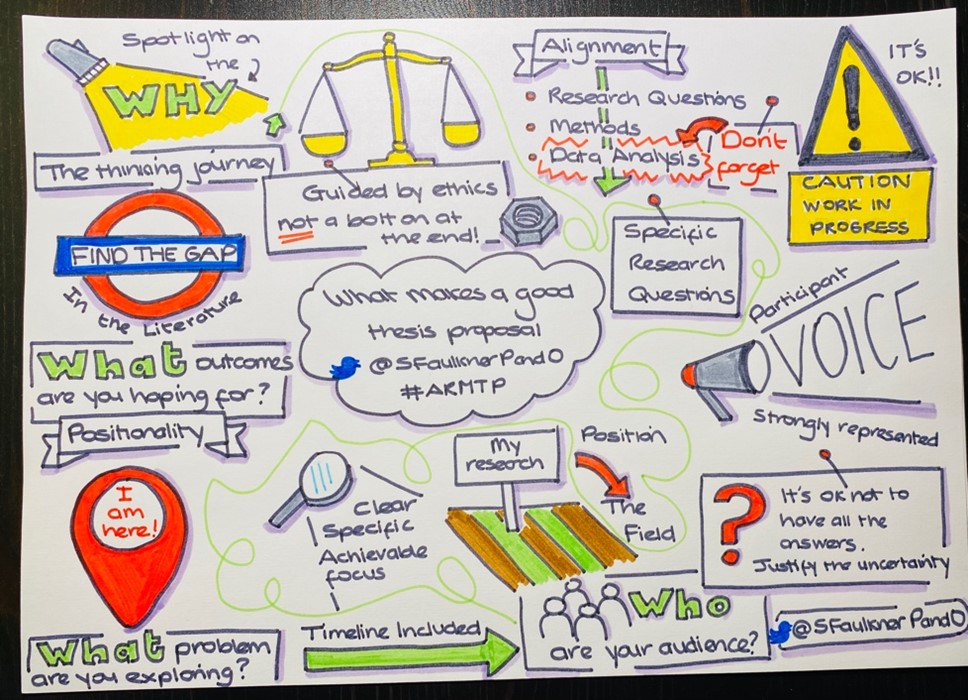 Spotlight on
the
WHY
The thinking journey
Guided by ethics
not a bolt on at
the end!
Alignment
Research Questions
Methods
Data Analysis
Don't
forget
IT'S
OK!!
CAUTION
WORK IN
PROGRESS
FIND THE GAP
In the Literature
Specific
Research
Questions
What makes a good
thesis proposal
@SFaulknerPandO
#ARMTP
Participant
VOICE
Strongly represented
What outcomes
are you hoping for?
Positionality
I
am
here!
Clear
Specific
Achievable
focus
My
research
Position
The
Field
?
It's ok not to
have all the
answers.
Justify the uncertainty
What problem
are you exploring?
Timeline Included
Who
are your audience?
@SFaulknerPandO